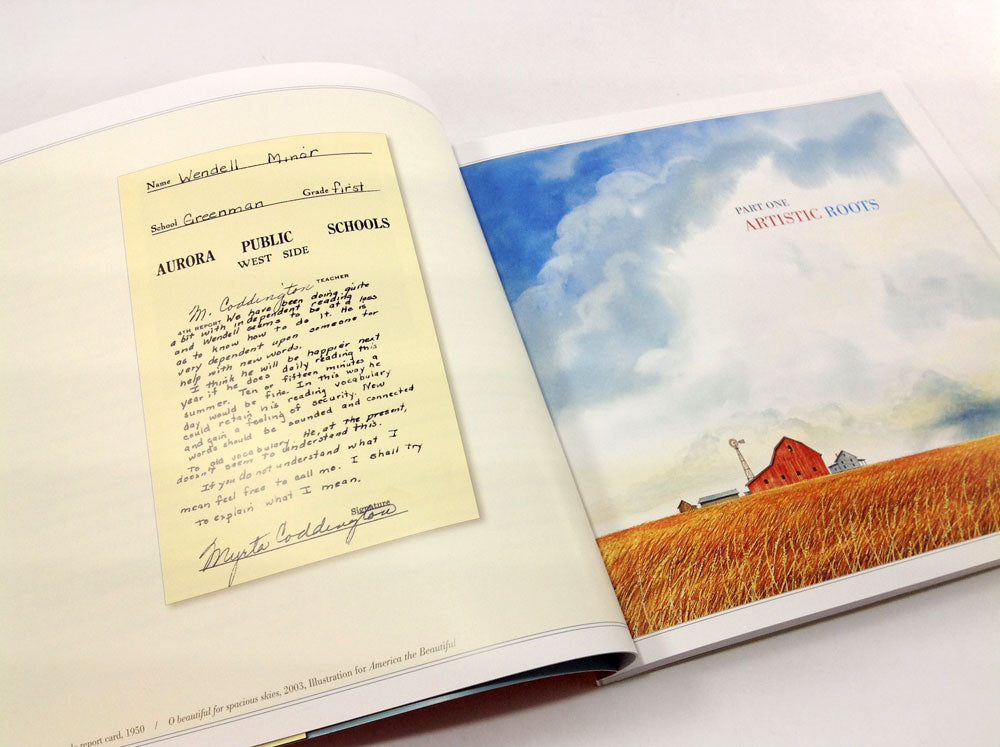 Name Wendell Minor
School Greenman Grade first
AURORA PUBLIC SCHOOLS
WEST SIDE
M. Coddington TEACHER
4TH REPORT We have been doing quite
a bit with independent reading
and Wendell seems to be at a loss
as to know how to do it. He is
very dependent upon someone for
help with new words.
I think he will be happier next
year if he does daily reading this
summer. Ten or fifteen minutes a
day would be fine. In this way he
could retain his reading vocabulary
and gain a feeling of security. New
words should be sounded and connected
to old vocabulary. He, at the present,
doesn't seem to understand this.
If you do not understand what I
mean feel free to call me. I shall try
to explain what I mean.
Signature
Myrta Coddington
report card, 1950 / O beautiful for spacious skies, 2003, Illustration for America the Beautiful
PART ONE
ARTISTIC ROOTS